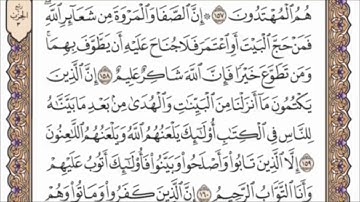 هُمُ ٱلْمُهْتَدُونَ ١٥٧ إِنَّ ٱلصَّفَا وَٱلْمَرْوَةَ مِن شَعَآئِرِ ٱللَّهِ
فَمَنْ حَجَّ ٱلْبَيْتَ أَوِ ٱعْتَمَرَ فَلَا جُنَاحَ عَلَيْهِ أَن يَطَّوَّفَ بِهِمَا
وَمَن تَطَوَّعَ خَيْرًا فَإِنَّ ٱللَّهَ شَاكِرٌ عَلِيمٌ ١٥٨ إِنَّ ٱلَّذِينَ
يَكْتُمُونَ مَآ أَنزَلْنَا مِنَ ٱلْبَيِّنَٰتِ وَٱلْهُدَىٰ مِنۢ بَعْدِ مَا بَيَّنَّٰهُ
لِلنَّاسِ فِى ٱلْكِتَٰبِ أُو۟لَٰٓئِكَ يَلْعَنُهُمُ ٱللَّهُ وَيَلْعَنُهُمُ ٱللَّٰعِنُونَ
١٥٩ إِلَّا ٱلَّذِينَ تَابُوا۟ وَأَصْلَحُوا۟ وَبَيَّنُوا۟ فَأُو۟لَٰٓئِكَ أَتُوبُ عَلَيْهِمْ
وَأَنَا ٱلتَّوَّابُ ٱلرَّحِيمُ ١٦٠ إِنَّ ٱلَّذِينَ كَفَرُوا۟ وَمَاتُوا۟ وَهُمْ